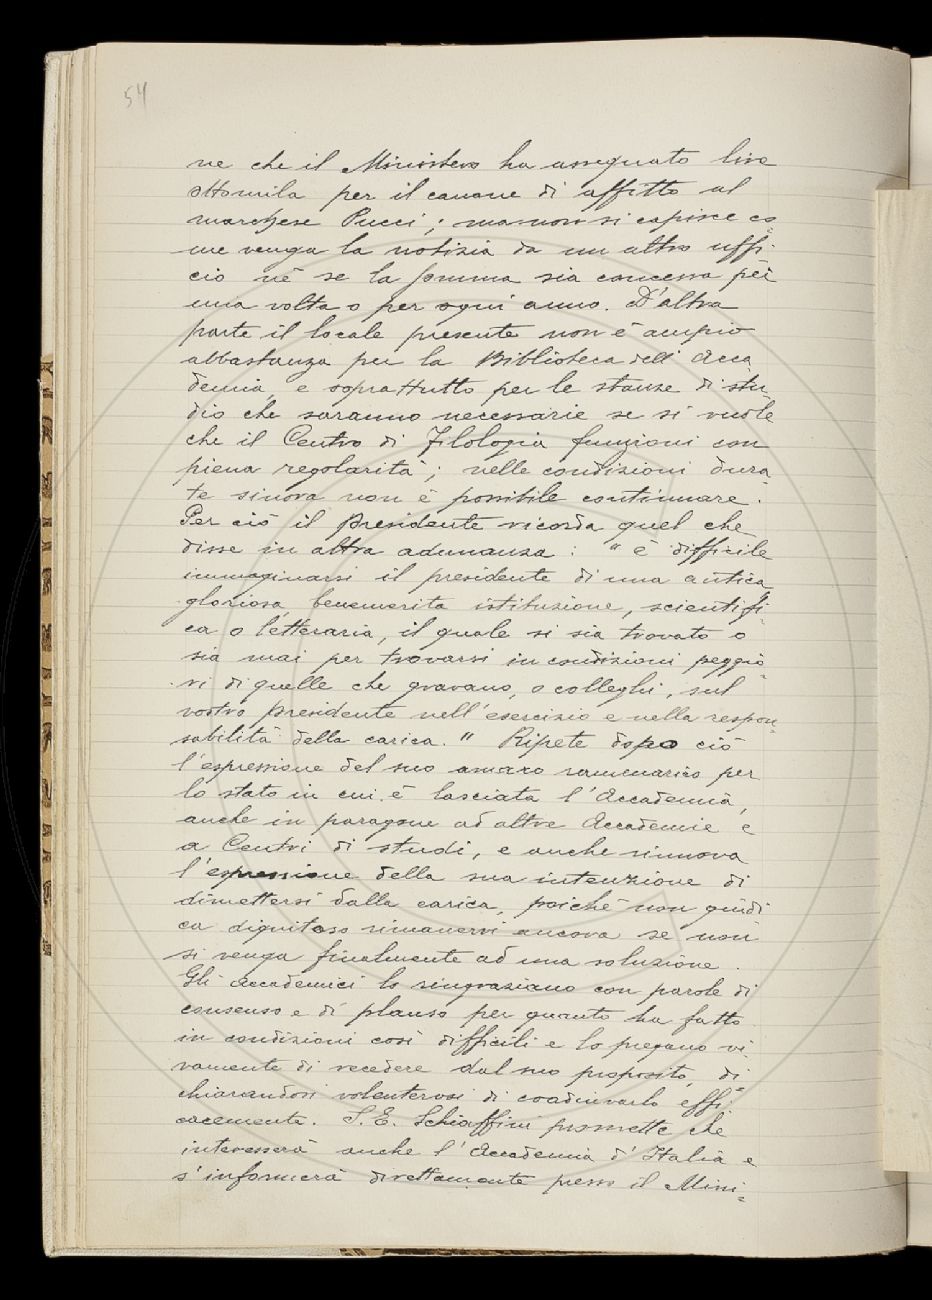 54
ne che il Ministero ha assegnato lire
ottomila per il canone di affitto al
marchese Pucci; ma non si capisce co-
me venga la notizia da un altro uffi-
cio nè se la somma sia concessa per
una volta o per ogni anno. D'altra
parte il locale presente non è ampio
abbastanza per la Biblioteca dell'Acca-
demia, e soprattutto per le stanze di stu-
dio che saranno necessarie se si vuole
che il Centro di Filologia funzioni con
piena regolarità; nelle condizioni dura-
te sinora non è possibile continuare.
Per ciò il presidente ricorda quel che
disse in altra adunanza: "è difficile
immaginarsi il presidente di una antica
gloriosa, benemerita istituzione, scientifi-
ca o letteraria, il quale si sia trovato o
sia mai per trovarsi in condizioni peggio-
ri di quelle che gravano, o colleghi, sul
vostro presidente nell'esercizio e nella respon-
sabilità della carica." Ripete dopo ciò
l'espressione del suo amaro rammarico per
lo stato in cui è lasciata l'Accademia,
anche in paragone ad altre Accademie e
a Centri di studi, e anche rinnova
l'espressione della sua intenzione di
dimettersi dalla carica, poichè non giudi-
ca dignitoso rimanervi ancora se non
si venga finalmente ad una soluzione.
Gli Accademici lo ringraziano con parole di
consenso e di plauso per quanto ha fatto
in condizioni così difficili e lo pregano vi-
vamente di recedere dal suo proposito, di-
chiarandosi volenterosi di coadiuvarlo effi-
cacemente. S.E. Schiaffini promette che
interesserà anche l'Accademia d'Italia e
s'informerà direttamente presso il Mini-